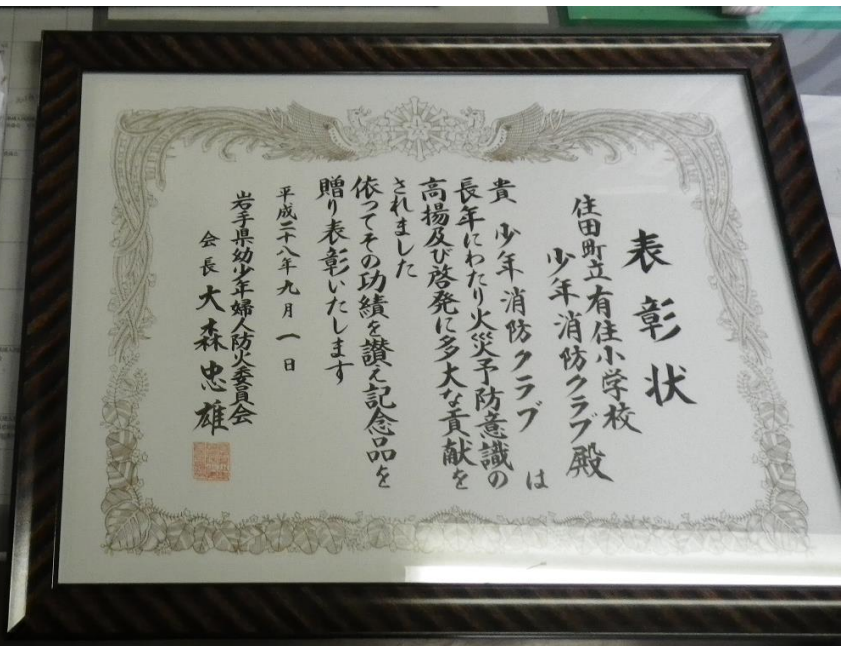 表彰状
住田町立有住小学校
少年消防クラブ殿
貴 少年消防クラブ は
長年にわたり火災予防意識の
高揚及び啓発に多大な貢献を
されました
依ってその功績を讃え記念品を
贈り表彰いたします
平成二十八年九月一日
岩手県幼少年婦人防火委員会
会長 大森忠雄